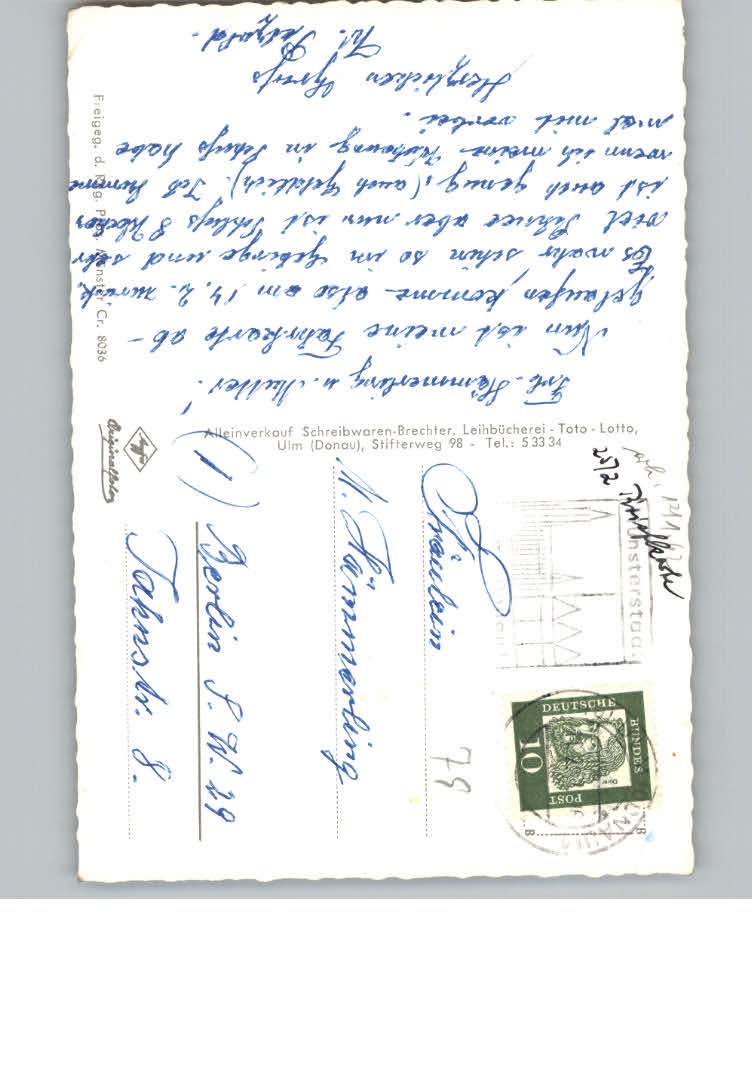 Frl. Hämmerling u. Mutter!
Nun ist meine Fahrkarte ab-
gelaufen, komme also am 14. 2. zurück
Es wahr schön so im Gebirge und sehr
viel Schnee aber nun ist Schluß 8 Wochen
ist auch genug, (auch Geldlich). Ich komme
wenn ich meine Wohnung in Schuß habe
mal mit vorbei.
Herzlichen Gruß
Freigeg. d. Reg. Präs. Münster Cr. 8036
Agfa
Originalfoto
Alleinverkauf Schreibwaren-Brechter, Leihbücherei - Toto - Lotto,
Ulm (Donau), Stifterweg 98 - Tel.: 5 33 34
Fräulein
M. Hämmerling
(1) Berlin S. W. 29
Jahnstr. 8.
79
25/2
Münsterstadt
DEUTSCHE
BUNDES
POST
10
Dürer
B
B